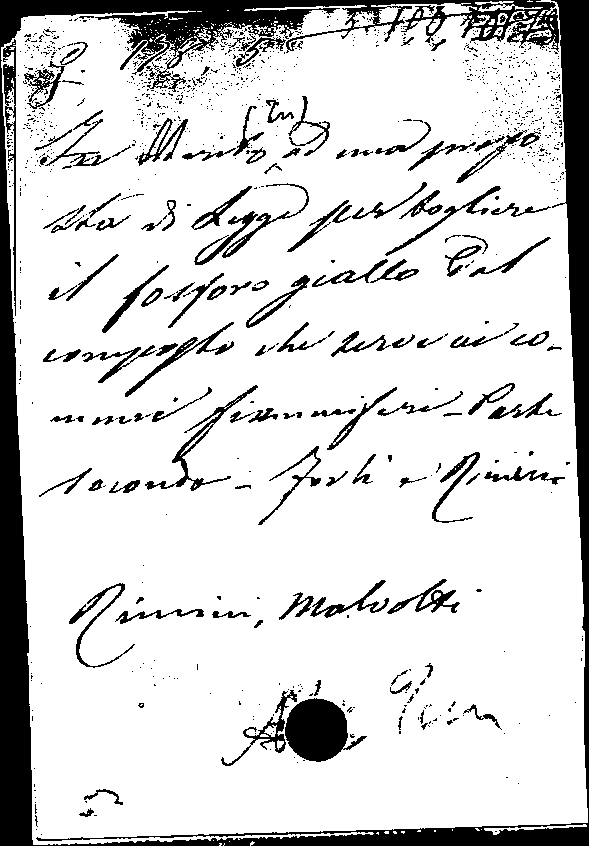 G. 128, 5
(In)
In Merito ad una propo
sta di Legge per togliere
il fosforo giallo dal
composto che serve ai co-
muni fiammiferi - Parte
seconda - Forlì e Rimini
Rimini, Malvolti